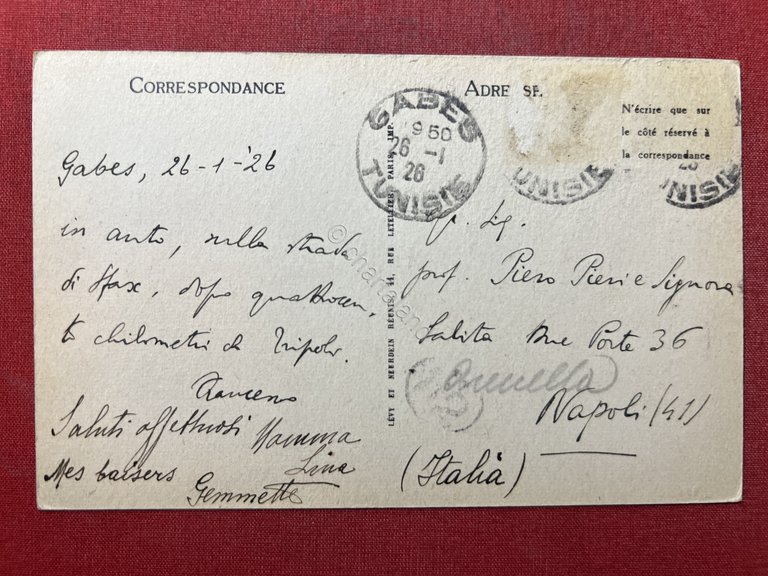 CORRESPONDANCE
Gabes, 26-1-'26
in auto, sulla strada
di Sfax, dopo quattrocen,
to chilometri da Tripoli.
Francesco
Saluti affettuosi Mamma
Lina
Mes baisers
Gemmette
LÉVY ET NEURDEIN RÉUNIS, 44, RUE LETELLIER, PARIS, IMP.
ADRE SE
N'écrire que sur
le côté réservé à
la correspondance
GABES
9 50
26 -1
26
TUNISIE
TUNISIE
26
TUNISIE
Sig.
prof. Piero Pieri e Signora
Salita Due Porte 36
Napoli (41)
(Italia)